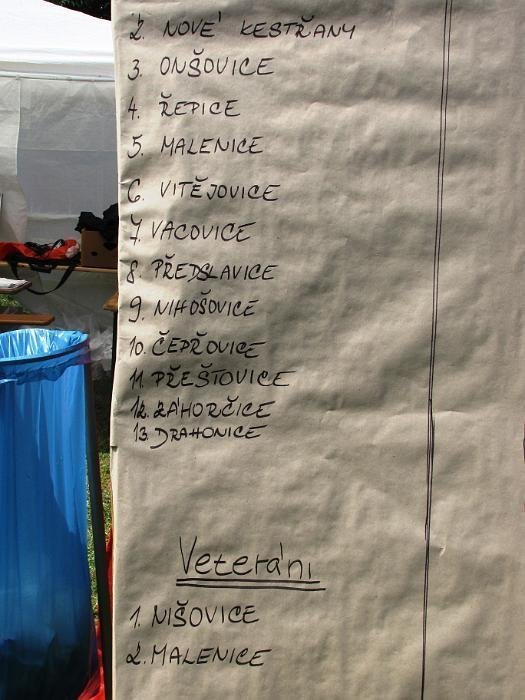 2. NOVÉ KESTŘANY
3. ONŠOVICE
4. ŘEPICE
5. MALENICE
6. VITĚJOVICE
7. VACOVICE
8. PŘEDSLAVICE
9. NIHOŠOVICE
10. ČEPŘOVICE
11. PŘEŠŤOVICE
12. ZÁHORČICE
13. DRAHONICE
Veteráni
1. NIŠOVICE
2. MALENICE